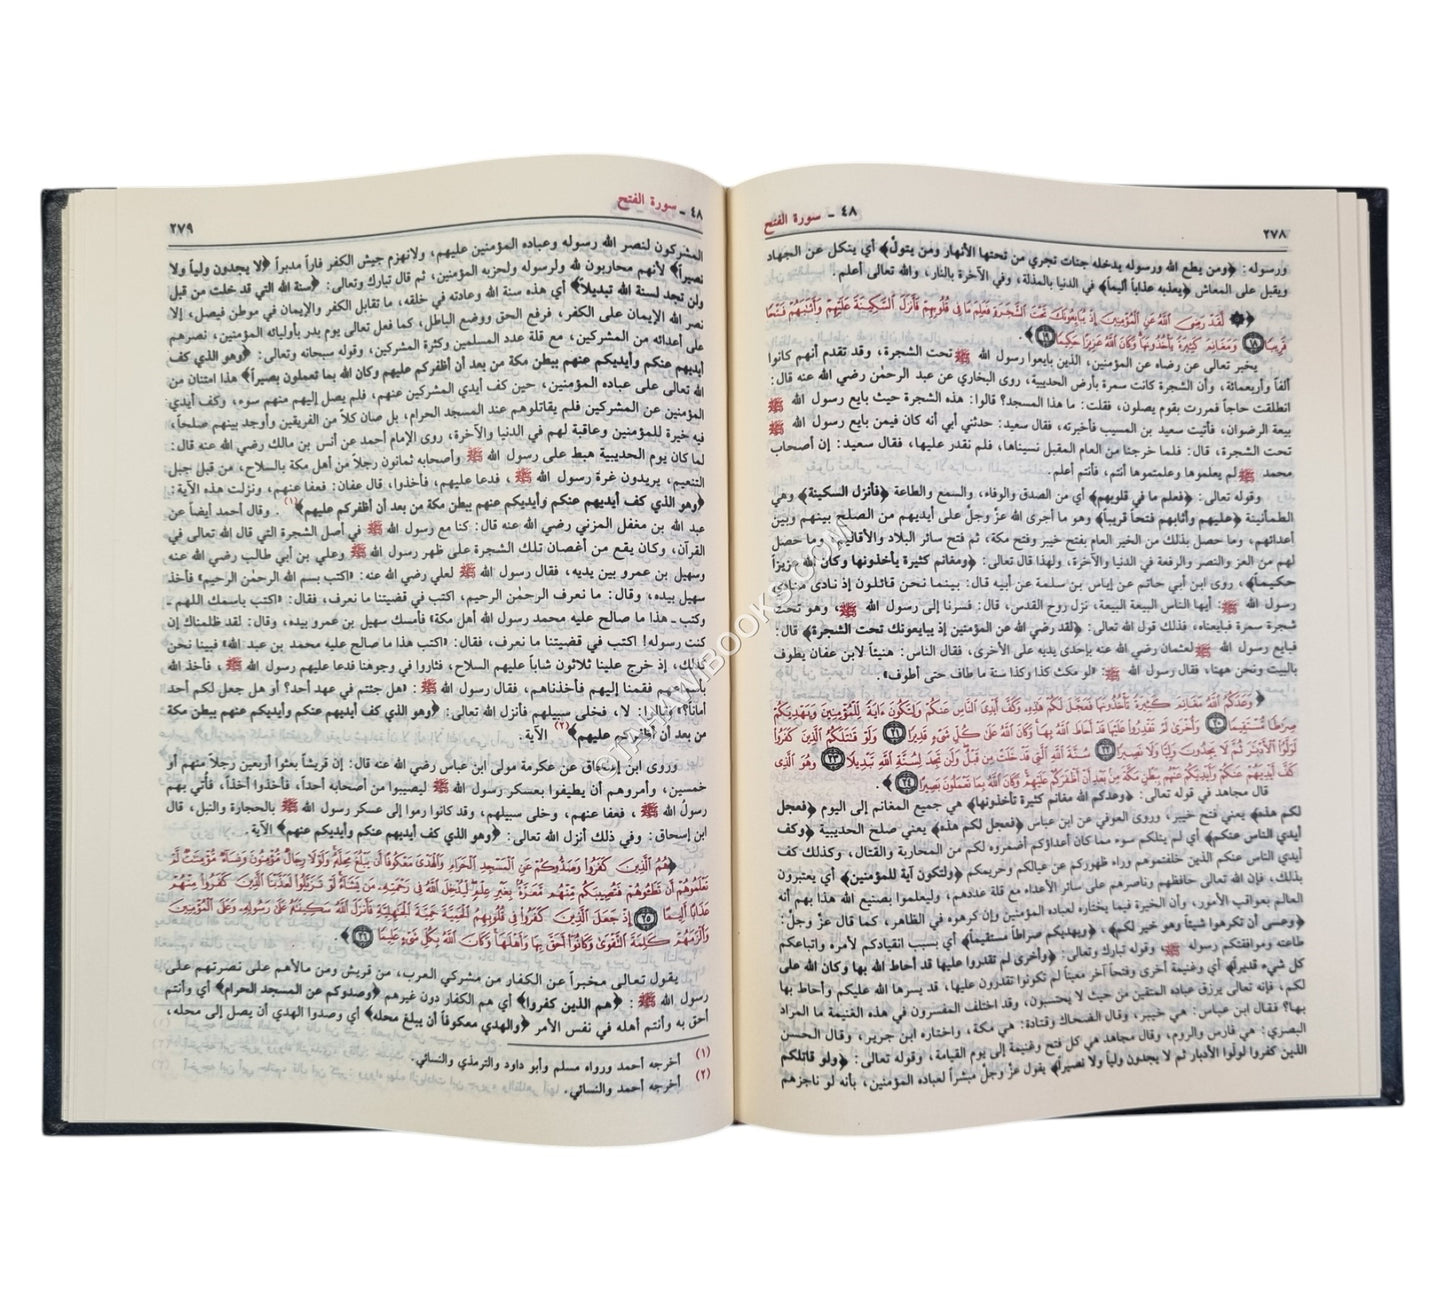 ٢٧٨
٤٨ - سورة الفتح
ورسوله: ﴿ومن يطع الله ورسوله يدخله جنات تجري من تحتها الأنهار ومن يتول﴾ أي ينكل عن الجهاد
ويقبل على المعاش ﴿يعذبه عذاباً أليماً﴾ في الدنيا بالمذلة، وفي الآخرة بالنار، والله تعالى أعلم.
﴿۞ لَّقَدْ رَضِيَ اللَّهُ عَنِ الْمُؤْمِنِينَ إِذْ يُبَايِعُونَكَ تَحْتَ الشَّجَرَةِ فَعَلِمَ مَا فِي قُلُوبِهِمْ فَأَنزَلَ السَّكِينَةَ عَلَيْهِمْ وَأَثَابَهُمْ فَتْحًا
قَرِيبًا ١٨ وَمَغَانِمَ كَثِيرَةً يَأْخُذُونَهَا وَكَانَ اللَّهُ عَزِيزًا حَكِيمًا ١٩﴾.
يخبر تعالى عن رضاه عن المؤمنين، الذين بايعوا رسول الله ﷺ تحت الشجرة، وقد تقدم أنهم كانوا
ألفاً وأربعمائة، وأن الشجرة كانت سمرة بأرض الحديبية، روى البخاري عن عبد الرحمٰن رضي الله عنه قال:
انطلقت حاجاً فمررت بقوم يصلون، فقلت: ما هذا المسجد؟ قالوا: هذه الشجرة حيث بايع رسول الله ﷺ
بيعة الرضوان، فأتيت سعيد بن المسيب فأخبرته، فقال سعيد: حدثني أبي أنه كان فيمن بايع رسول الله ﷺ
تحت الشجرة، قال: فلما خرجنا من العام المقبل نسيناها، فلم نقدر عليها، فقال سعيد: إن أصحاب
محمد ﷺ لم يعلموها وعلمتموها أنتم، فأنتم أعلم.
وقوله تعالى: ﴿فعلم ما في قلوبهم﴾ أي من الصدق والوفاء، والسمع والطاعة ﴿فأنزل السكينة﴾ وهي
الطمأنينة ﴿عليهم وأثابهم فتحاً قريباً﴾ وهو ما أجرى الله عزّ وجلّ على أيديهم من الصلح بينهم وبين
أعدائهم، وما حصل بذلك من الخير العام بفتح خيبر وفتح مكة، ثم فتح سائر البلاد والأقاليم، وما حصل
لهم من العز والنصر والرفعة في الدنيا والآخرة، ولهذا قال تعالى: ﴿ومغانم كثيرة يأخذونها وكان الله عزيزاً
حكيماً﴾، روى ابن أبي حاتم عن إياس بن سلمة عن أبيه قال: بينما نحن قائلون إذ نادى منادي
رسول الله ﷺ: أيها الناس البيعة البيعة، نزل روح القدس، قال: فسرنا إلى رسول الله ﷺ، وهو تحت
شجرة سمرة فبايعناه، فذلك قول الله تعالى: ﴿لقد رضي الله عن المؤمنين إذ يبايعونك تحت الشجرة﴾ قال:
فبايع رسول الله ﷺ لعثمان رضي الله عنه بإحدى يديه على الأخرى، فقال الناس: هنيئاً لابن عفان يطوف
بالبيت ونحن ههنا، فقال رسول الله ﷺ: «لو مكث كذا وكذا سنة ما طاف حتى أطوف».
﴿وَعَدَكُمُ اللَّهُ مَغَانِمَ كَثِيرَةً تَأْخُذُونَهَا فَعَجَّلَ لَكُمْ هَذِهِ وَكَفَّ أَيْدِيَ النَّاسِ عَنكُمْ وَلِتَكُونَ آيَةً لِّلْمُؤْمِنِينَ وَيَهْدِيَكُمْ
صِرَاطًا مُّسْتَقِيمًا ٢٠ وَأُخْرَى لَمْ تَقْدِرُوا عَلَيْهَا قَدْ أَحَاطَ اللَّهُ بِهَا وَكَانَ اللَّهُ عَلَى كُلِّ شَيْءٍ قَدِيرًا ٢١ وَلَوْ قَاتَلَكُمُ الَّذِينَ كَفَرُوا
لَوَلَّوُا الْأَدْبَارَ ثُمَّ لَا يَجِدُونَ وَلِيًّا وَلَا نَصِيرًا ٢٢ سُنَّةَ اللَّهِ الَّتِي قَدْ خَلَتْ مِن قَبْلُ وَلَن تَجِدَ لِسُنَّةِ اللَّهِ تَبْدِيلًا ٢٣ وَهُوَ الَّذِي
كَفَّ أَيْدِيَهُمْ عَنكُمْ وَأَيْدِيَكُمْ عَنْهُم بِبَطْنِ مَكَّةَ مِن بَعْدِ أَنْ أَظْفَرَكُمْ عَلَيْهِمْ وَكَانَ اللَّهُ بِمَا تَعْمَلُونَ بَصِيرًا ٢٤﴾.
قال مجاهد في قوله تعالى: ﴿وعدكم الله مغانم كثيرة تأخذونها﴾ هي جميع المغانم إلى اليوم ﴿فعجل
لكم هذه﴾ يعني فتح خيبر، وروى العوفي عن ابن عباس ﴿فعجل لكم هذه﴾ يعني صلح الحديبية ﴿وكف
أيدي الناس عنكم﴾ أي لم ينلكم سوء مما كان أعداؤكم أضمروه لكم من المحاربة والقتال، وكذلك كف
أيدي الناس عنكم الذين خلفتموهم وراء ظهوركم عن عيالكم وحريمكم ﴿ولتكون آية للمؤمنين﴾ أي يعتبرون
بذلك، فإن الله تعالى حافظهم وناصرهم على سائر الأعداء مع قلة عددهم، وليعلموا بصنيع الله هذا بهم أنه
العالم بعواقب الأمور، وأن الخيرة فيما يختاره لعباده المؤمنين وإن كرهوه في الظاهر، كما قال عزّ وجلّ:
﴿وعسى أن تكرهوا شيئاً وهو خير لكم﴾، ﴿ويهديكم صراطاً مستقيماً﴾ أي بسبب انقيادكم لأمره واتباعكم
طاعته وموافقتكم رسوله ﷺ، وقوله تبارك وتعالى: ﴿وأخرى لم تقدروا عليها قد أحاط الله بها وكان الله على
كل شيء قديراً﴾ أي وغنيمة أخرى وفتحاً آخر معيناً لم تكونوا تقدرون عليها، قد يسرها الله عليكم وأحاط بها
لكم، فإنه تعالى يرزق عباده المتقين من حيث لا يحتسبون، وقد اختلف المفسرون في هذه الغنيمة ما المراد
بها؟ فقال ابن عباس: هي خيبر، وقال الضحاك وقتادة: هي مكة، واختاره ابن جرير، وقال الحسن
البصري: هي فارس والروم، وقال مجاهد هي كل فتح وغنيمة إلى يوم القيامة، وقوله تعالى: ﴿ولو قاتلكم
الذين كفروا لولوا الأدبار ثم لا يجدون ولياً ولا نصيراً﴾ يقول عزّ وجلّ مبشراً لعباده المؤمنين، بأنه لو ناجزهم
٤٨ - سورة الفتح
٢٧٩
المشركون لنصر الله رسوله وعباده المؤمنين عليهم، ولانهزم جيش الكفر فاراً مدبراً ﴿لا يجدون ولياً ولا
نصيراً﴾ لأنهم محاربون لله ولرسوله ولحزبه المؤمنين، ثم قال تبارك وتعالى: ﴿سنة الله التي قد خلت من قبل
ولن تجد لسنة الله تبديلاً﴾ أي هذه سنة الله وعادته في خلقه، ما تقابل الكفر والإيمان في موطن فيصل، إلا
نصر الله الإيمان على الكفر، فرفع الحق ووضع الباطل، كما فعل تعالى يوم بدر بأوليائه المؤمنين، نصرهم
على أعدائه من المشركين، مع قلة عدد المسلمين وكثرة المشركين، وقوله سبحانه وتعالى: ﴿وهو الذي كف
أيديهم عنكم وأيديكم عنهم ببطن مكة من بعد أن أظفركم عليهم وكان الله بما تعملون بصيراً﴾ هذا امتنان من
الله تعالى على عباده المؤمنين، حين كف أيدي المشركين عنهم، فلم يصل إليهم منهم سوء، وكف أيدي
المؤمنين عن المشركين فلم يقاتلوهم عند المسجد الحرام، بل صان كلاً من الفريقين وأوجد بينهم صلحاً،
فيه خيرة للمؤمنين وعاقبة لهم في الدنيا والآخرة، روى الإمام أحمد عن أنس بن مالك رضي الله عنه قال:
لما كان يوم الحديبية هبط على رسول الله ﷺ وأصحابه ثمانون رجلاً من أهل مكة بالسلاح، من قبل جبل
التنعيم، يريدون غرة رسول الله ﷺ، فدعا عليهم، فأخذوا، قال عفان: فعفا عنهم، ونزلت هذه الآية:
﴿وهو الذي كف أيديهم عنكم وأيديكم عنهم ببطن مكة من بعد أن أظفركم عليهم﴾(١). وقال أحمد أيضاً عن
عبد الله بن مغفل المزني رضي الله عنه قال: كنا مع رسول الله ﷺ في أصل الشجرة التي قال الله تعالى في
القرآن، وكان يقع من أغصان تلك الشجرة على ظهر رسول الله ﷺ وعلي بن أبي طالب رضي الله عنه
وسهيل بن عمرو بين يديه، فقال رسول الله ﷺ لعلي رضي الله عنه: «اكتب بسم الله الرحمٰن الرحيم» فأخذ
سهيل بيده، وقال: ما نعرف الرحمٰن الرحيم، اكتب في قضيتنا ما نعرف، فقال: «اكتب باسمك اللهم -
وكتب - هذا ما صالح عليه محمد رسول الله أهل مكة» فأمسك سهيل بن عمرو بيده، وقال: لقد ظلمناك إن
كنت رسوله! اكتب في قضيتنا ما نعرف، فقال: «اكتب هذا ما صالح عليه محمد بن عبد الله» فبينا نحن
كذلك، إذ خرج علينا ثلاثون شاباً عليهم السلاح، فثاروا في وجوهنا فدعا عليهم رسول الله ﷺ، فأخذ الله
بأسماعهم، فقمنا إليهم فأخذناهم، فقال رسول الله ﷺ: «هل جئتم في عهد أحد؟ أو هل جعل لكم أحد
أماناً؟» قالوا: لا، فخلى سبيلهم فأنزل الله تعالى: ﴿وهو الذي كف أيديهم عنكم وأيديكم عنهم ببطن مكة
من بعد أن أظفركم عليهم﴾(٢) الآية.
وروى ابن إسحاق عن عكرمة مولى ابن عباس رضي الله عنه قال: إن قريشاً بعثوا أربعين رجلاً منهم أو
خمسين، وأمروهم أن يطيفوا بعسكر رسول الله ﷺ ليصيبوا من أصحابه أحداً، فأخذوا أخذاً، فأتي بهم
رسول الله ﷺ، فعفا عنهم، وخلى سبيلهم، وقد كانوا رموا إلى عسكر رسول الله ﷺ بالحجارة والنبل، قال
ابن إسحاق: وفي ذلك أنزل الله تعالى: ﴿وهو الذي كف أيديهم عنكم وأيديكم عنهم﴾ الآية.
﴿هُمُ الَّذِينَ كَفَرُوا وَصَدُّوكُمْ عَنِ الْمَسْجِدِ الْحَرَامِ وَالْهَدْيَ مَعْكُوفًا أَن يَبْلُغَ مَحِلَّهُ وَلَوْلَا رِجَالٌ مُّؤْمِنُونَ وَنِسَاءٌ مُّؤْمِنَاتٌ لَّمْ
تَعْلَمُوهُمْ أَن تَطَئُوهُمْ فَتُصِيبَكُم مِّنْهُم مَّعَرَّةٌ بِغَيْرِ عِلْمٍ لِّيُدْخِلَ اللَّهُ فِي رَحْمَتِهِ مَن يَشَاءُ لَوْ تَزَيَّلُوا لَعَذَّبْنَا الَّذِينَ كَفَرُوا مِنْهُمْ
عَذَابًا أَلِيمًا ٢٥ إِذْ جَعَلَ الَّذِينَ كَفَرُوا فِي قُلُوبِهِمُ الْحَمِيَّةَ حَمِيَّةَ الْجَاهِلِيَّةِ فَأَنزَلَ اللَّهُ سَكِينَتَهُ عَلَى رَسُولِهِ وَعَلَى الْمُؤْمِنِينَ
وَأَلْزَمَهُمْ كَلِمَةَ التَّقْوَى وَكَانُوا أَحَقَّ بِهَا وَأَهْلَهَا وَكَانَ اللَّهُ بِكُلِّ شَيْءٍ عَلِيمًا ٢٦﴾.
يقول تعالى مخبراً عن الكفار من مشركي العرب، من قريش ومن مالأهم على نصرتهم على
رسول الله ﷺ: ﴿هم الذين كفروا﴾ أي هم الكفار دون غيرهم ﴿وصدوكم عن المسجد الحرام﴾ أي وأنتم
أحق به وأنتم أهله في نفس الأمر ﴿والهدي معكوفاً أن يبلغ محله﴾ أي وصدوا الهدي أن يصل إلى محله،
(١) أخرجه أحمد ورواه مسلم وأبو داود والترمذي والنسائي.
(٢) أخرجه أحمد والنسائي.
© TAHAWIBOOKS.COM